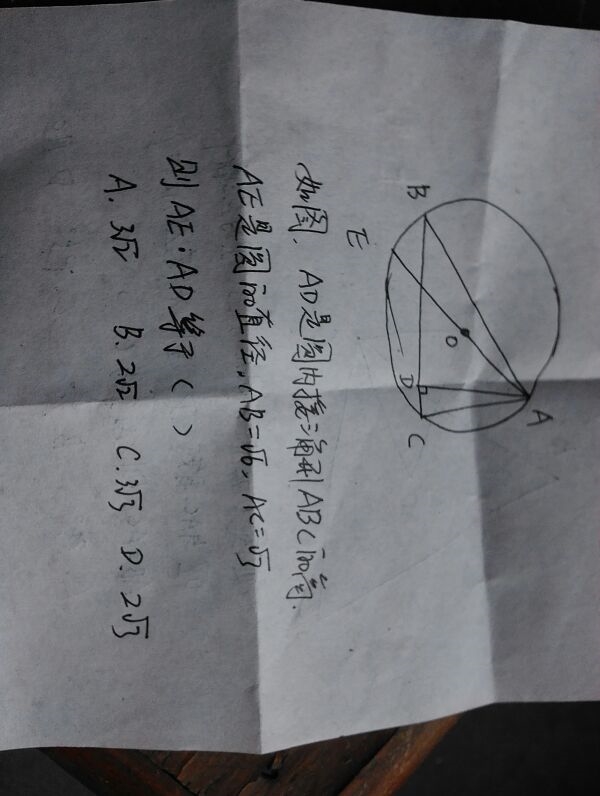 B
E
O
D
C
A
如图，AD是圆内接三角形ABC的高，
AE是圆的直径，AB=√6，AC=√3
则AE·AD等于（ ）
A. 3√2 B. 2√2 C. 3√3 D. 2√3